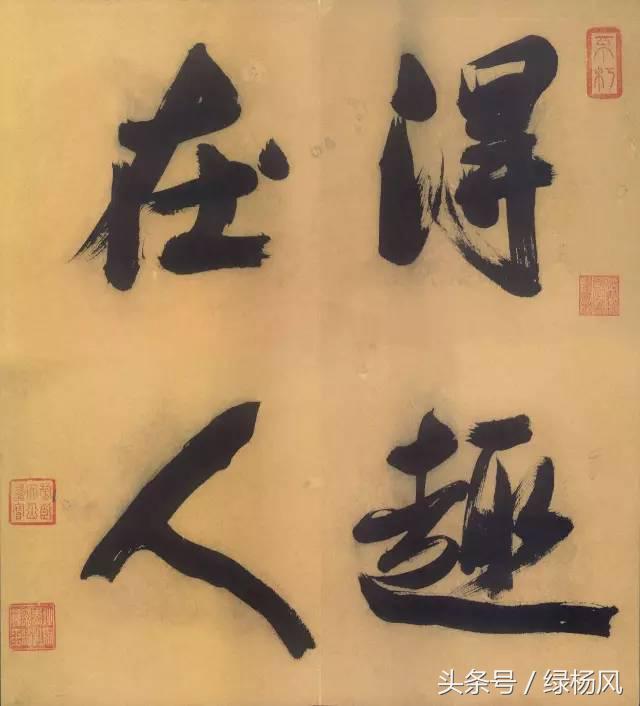 得趣
在人
头条号 / 绿杨风